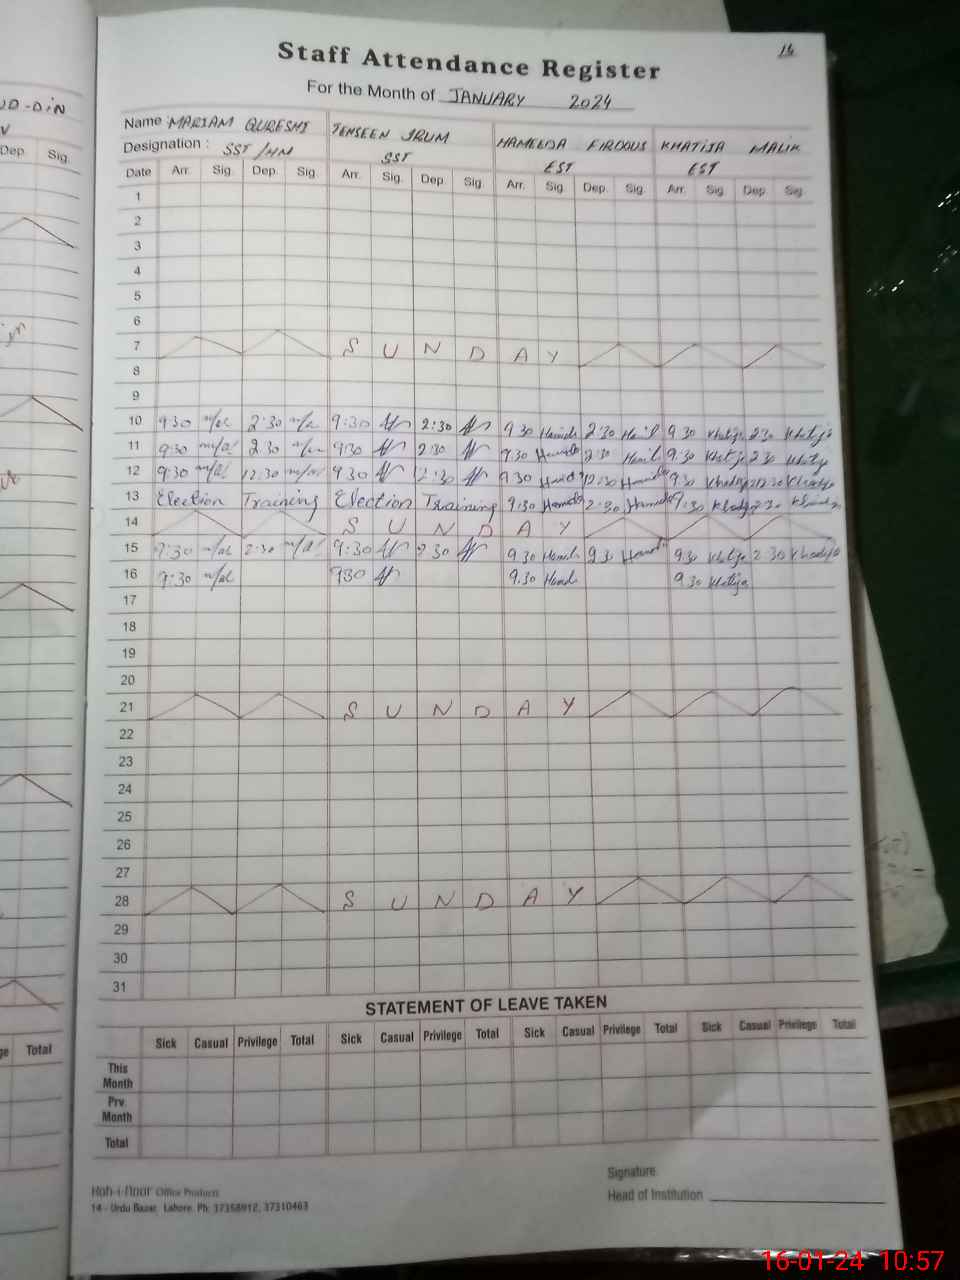 16
Staff Attendance Register
For the Month of JANUARY 2024
UD-DIN
Name MARIAM QURESHI TEHSEEN IRUM HAMEEDA FIRDOUS KHATIJA MALIK
Designation : SST/HM SST EST EST
Dep. Sig.
Date Arr. Sig. Dep. Sig. Arr. Sig. Dep. Sig. Arr. Sig. Dep. Sig. Arr. Sig. Dep. Sig.
1
2
3
4
5
6
7 S U N D A Y
8
9
10 9:30 2:30 9:30 2:30 9 30 2 30 9 30 Khatija 2 30 Khatija
11 9:30 2:30 9:30 2:30 9 30 2:30 9:30 Khatija 2 30 Khatija
12 9:30 12:30 9:30 12:30 9 30 12:30 9:30 Khadija 12:30 Khadija
13 Election Training Election Training 9:30 2:30 9:30 Khadija 2:30 Khadija
14 S U N D A Y
15 9:30 2:30 9:30 2 30 9.30 9.30 Khatija 2:30 Khadija
16 9:30 930 9.30 9.30 Khatija
17
18
19
20
21 S U N D A Y
22
23
24
25
26
27
28 S U N D A Y
29
30
31
STATEMENT OF LEAVE TAKEN
Total
Sick Casual Privilege Total Sick Casual Privilege Total Sick Casual Privilege Total Sick Casual Privilege Total
This Month
Prv. Month
Total
Signature
Head of Institution
Koh-i-Noor Office Products
14 - Urdu Bazar, Lahore. Ph: 37358912, 37310463
16-01-24 10:57